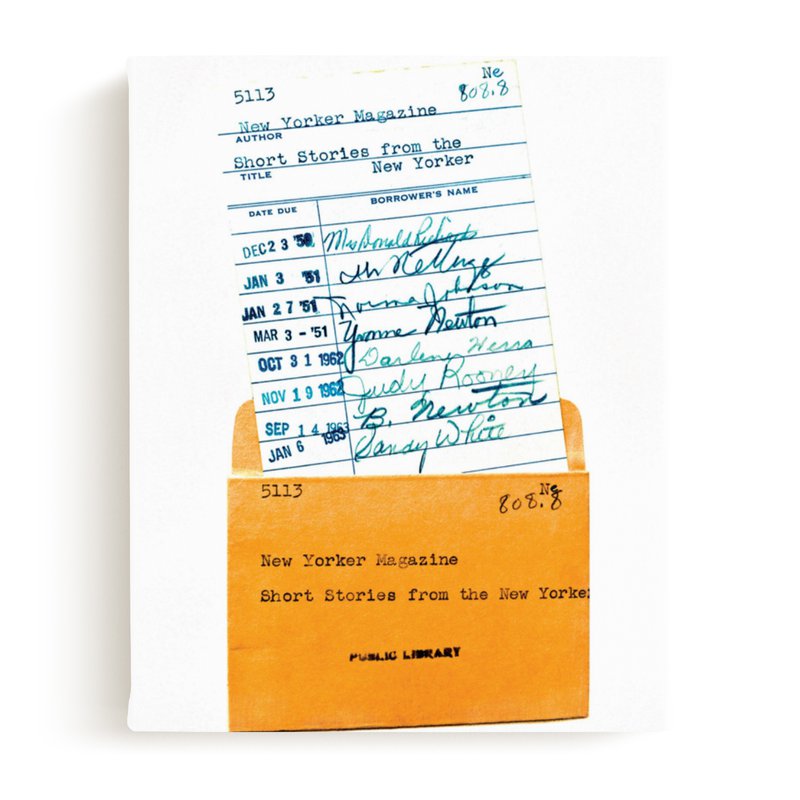 5113 Ne
808.8
New Yorker Magazine
AUTHOR
Short Stories from the
TITLE New Yorker
DATE DUE BORROWER'S NAME
DEC 23 '50 Mrs Donald Richards
JAN 3 '51
JAN 27 '51 Norma Johnson
MAR 3 - '51 Yvonne Newton
OCT 31 1962 Darlene
NOV 19 1962 Judy Rooney
SEP 14 1963 B. Newton
JAN 6 1963 Sandy White
5113 Ne
808.8
New Yorker Magazine
Short Stories from the New Yorker
PUBLIC LIBRARY